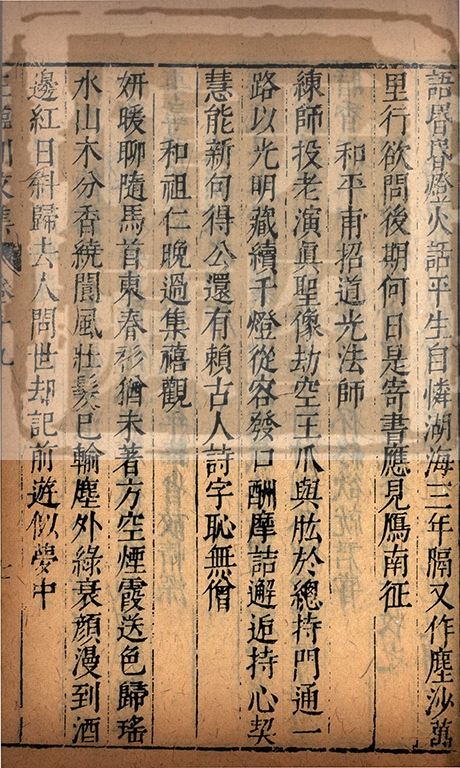 語昏昏燈火話平生自憐湖海三年隔又作塵沙萬
里行欲問後期何日是寄書應見鴈南征
和平甫招道光法師
練師投老演眞聖像劫空王爪與肱於總持門通一
路以光明藏續千燈從容發口酬摩詰邂逅持心契
慧能新句得公還有賴古人詩字恥無僧
和祖仁晚過集禧觀
妍暖聊隨馬首東春衫猶未著方空煙霞送色歸瑤
水山木分香繞閬風壯髮已輸塵外綠衰顔漫到酒
邊紅日斜歸去人間世却記前遊似夢中